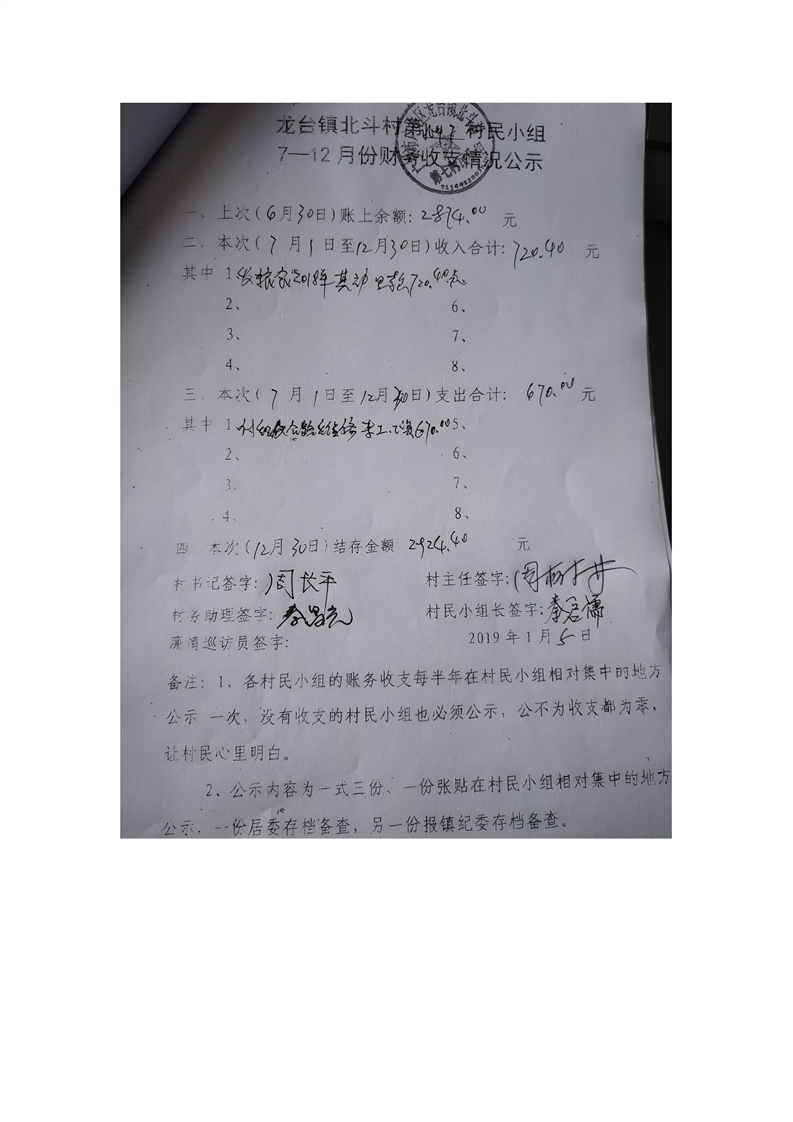 龙台镇北斗村第 7 村民小组
7—12月份财务收支情况公示
一、上次(6月30日)账上余额:2874.00 元
二、本次(7月1日至12月30日)收入合计:720.40 元
其中 1、 2018年 720.40元
2、 6、
3、 7、
4、 8、
三、本次(7月1日至12月30日)支出合计: 670.00元
其中 1、 670.00 5、
2、 6、
3、 7、
4、 8、
四、本次(12月30日)结存金额 2924.40 元
村书记签字:周长平 村主任签字:
村务助理签字: 村民小组长签字:
廉情巡访员签字: 2019年1月5日
备注:1、各村民小组的账务收支每半年在村民小组相对集中的地方
公示一次,没有收支的村民小组也必须公示,公不为收支都为零,
让村民心里明白。
2、公示内容为一式三份、一份张贴在村民小组相对集中的地方
公示,一份居委存档备查,另一份报镇纪委存档备查。